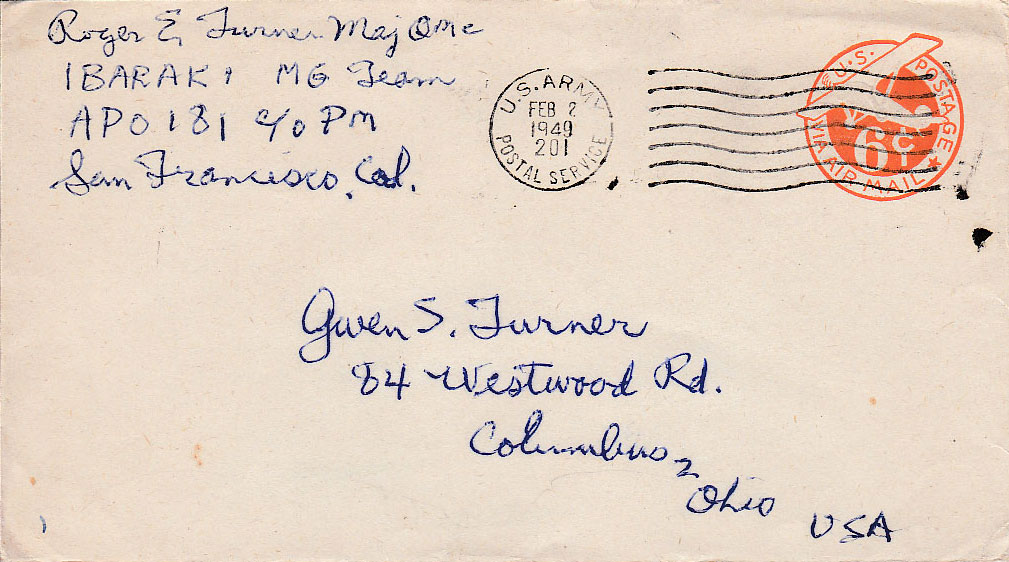 Roger E. Turner Maj QMC
IBARAKI MG Team
APO 181 c/o PM
San Francisco, Cal.
U.S. ARMY
FEB 2
1949
201
POSTAL SERVICE
U.S. POSTAGE
6¢
VIA AIR MAIL
Gwen S. Turner
84 Westwood Rd.
Columbus,
Ohio
USA